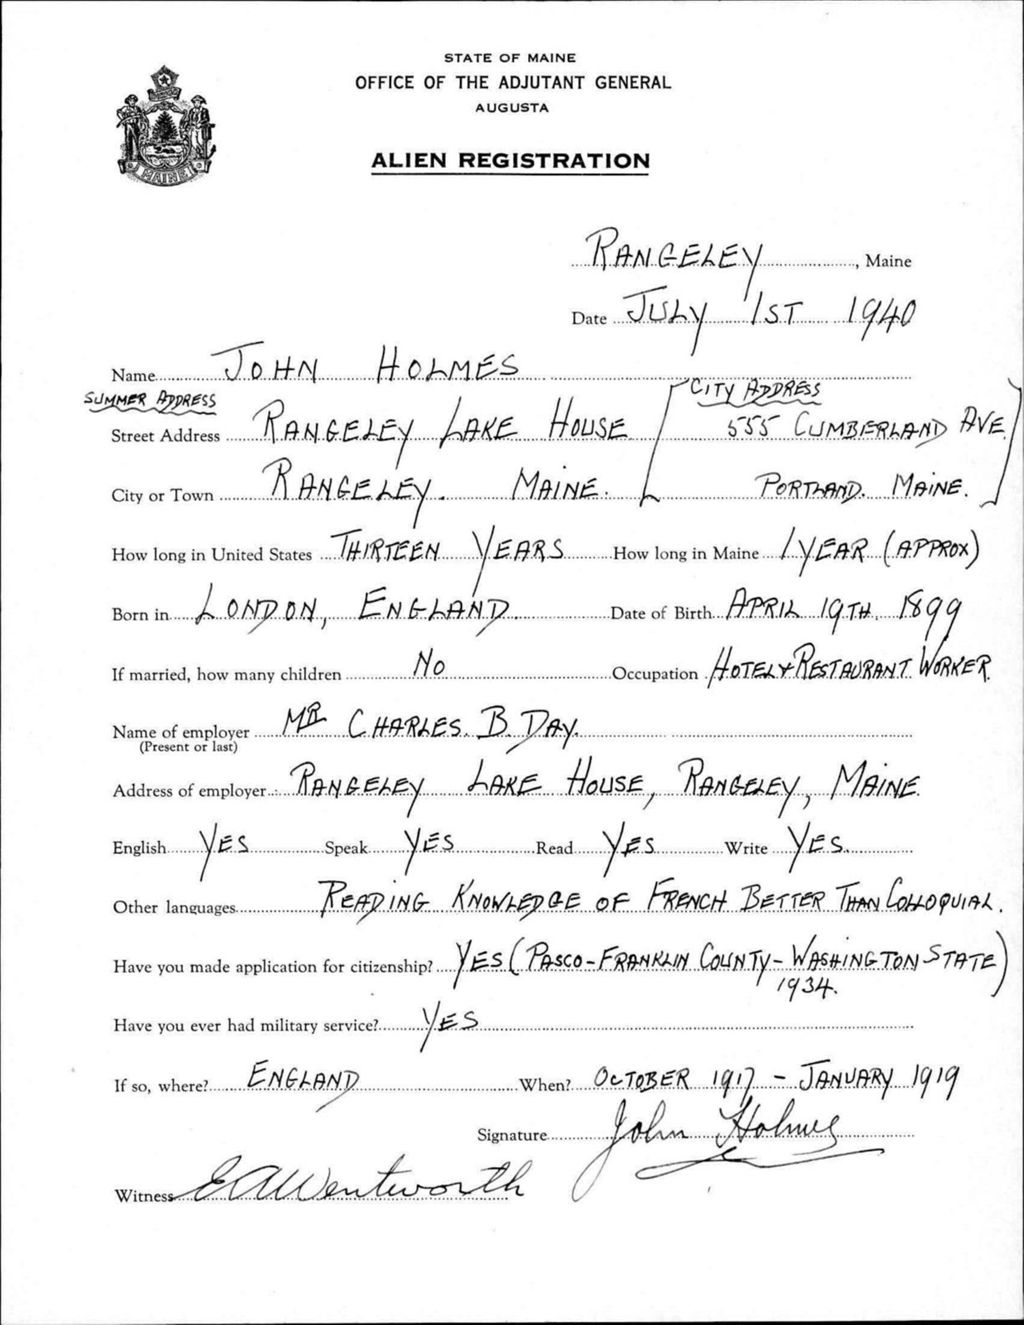 STATE OF MAINE
OFFICE OF THE ADJUTANT GENERAL
AUGUSTA
ALIEN REGISTRATION
MAINE
RANGELEY, Maine
Date JULY 1ST 1940
Name JOHN HOLMES
SUMMER ADDRESS [CITY ADDRESS
Street Address RANGELEY LAKE HOUSE 555 CUMBERLAND AVE.
City or Town RANGELEY. MAINE. PORTLAND. MAINE.]
How long in United States THIRTEEN YEARS How long in Maine 1 YEAR (APPROX)
Born in LONDON, ENGLAND Date of Birth APRIL 19TH, 1899
If married, how many children NO Occupation HOTEL & RESTAURANT WORKER.
Name of employer MR CHARLES. B. DAY.
(Present or last)
Address of employer RANGELEY LAKE HOUSE, RANGELEY, MAINE.
English YES Speak YES Read YES Write YES.
Other languages READING KNOWLEDGE OF FRENCH BETTER THAN COLLOQUIAL.
Have you made application for citizenship? YES (PASCO-FRANKLIN COUNTY-WASHINGTON STATE)
1934.
Have you ever had military service? YES
If so, where? ENGLAND When? OCTOBER 1917 - JANUARY 1919
Signature John Holmes
Witness E A Wentworth